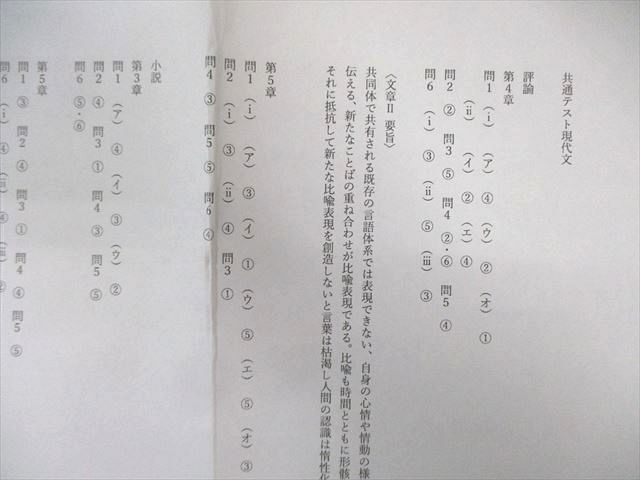 共通テスト現代文
評論
第4章
問1 (ⅰ) (ア) ④ (ウ) ② (オ) ①
(ⅱ) (イ) ② (エ) ④
問2 ② 問3 ⑤ 問4 ②・⑥ 問5 ④
問6 (ⅰ) ③ (ⅱ) ⑤ (ⅲ) ③
〈文章Ⅱ 要旨〉
共同体で共有される既存の言語体系では表現できない、自身の心情や情動の様
伝える、新たなことばの重ね合わせが比喩表現である。比喩も時間とともに形骸
それに抵抗して新たな比喩表現を創造しないと言葉は枯渇し人間の認識は惰性化
第5章
問1 (ⅰ) (ア) ③ (イ) ① (ウ) ⑤ (エ) ⑤ (オ) ③
問2 (ⅰ) ③ (ⅱ) ④ 問3 ①
問4 ③ 問5 ⑤ 問6 ④
小説
第3章
問1 (ア) ④ (イ) ③ (ウ) ②
問2 ④ 問3 ① 問4 ③ 問5 ⑤
問6 ⑤・⑥
第5章
問1 ③ 問2 ④ 問3 ① 問4 ④ 問5 ⑤
問6 (ⅰ) ④ (ⅱ)